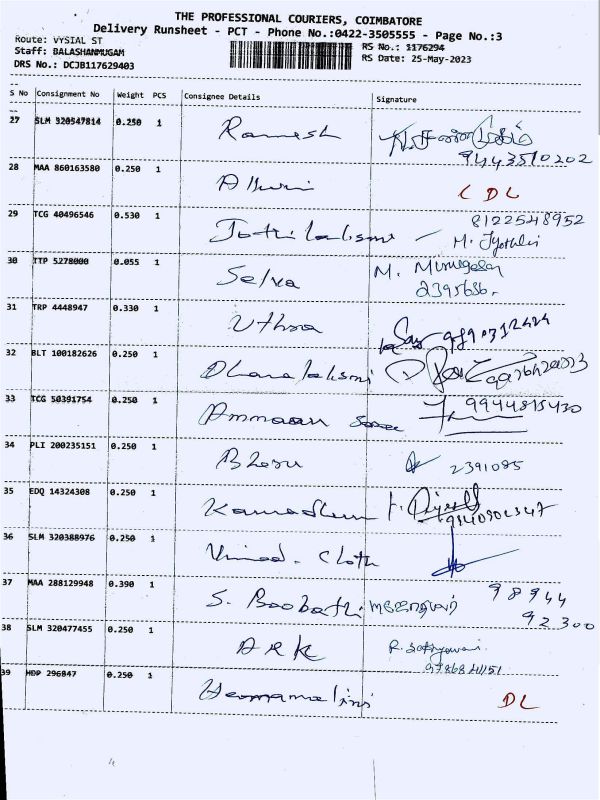 THE PROFESSIONAL COURIERS, COIMBATORE
Delivery Runsheet - PCT - Phone No.:0422-3505555 - Page No.:3
Route: VYSIAL ST
RS No.: 1176294
Staff: BALASHANMUGAM
RS Date: 25-May-2023
DRS No.: DCJB117629403
S No Consignment No Weight PCS Consignee Details Signature
27 SLM 320547814 0.250 1 Ramesh
9443510202
28 MAA 860163580 0.250 1 CDL
29 TCG 40496546 0.530 1 Jothilakshmi 8122548952
M. Jyothi
30 TTP 5278000 0.055 1 Selva M. Murugesan
2395686.
31 TRP 4448947 0.330 1 Uthra
32 BLT 100182626 0.250 1 Dhanalakshmi
33 TCG 50391754 0.250 1 Ammaan 9944815430
34 PLI 200235151 0.250 1 Bheru 2391085
35 EDQ 14324308 0.250 1
36 SLM 320388976 0.250 1 Vinod. Cloth
37 MAA 288129948 0.390 1 S. Boobathi 98944
92300
38 SLM 320477455 0.250 1 ARK
39 HDP 296847 0.250 1 Hemamalini DL